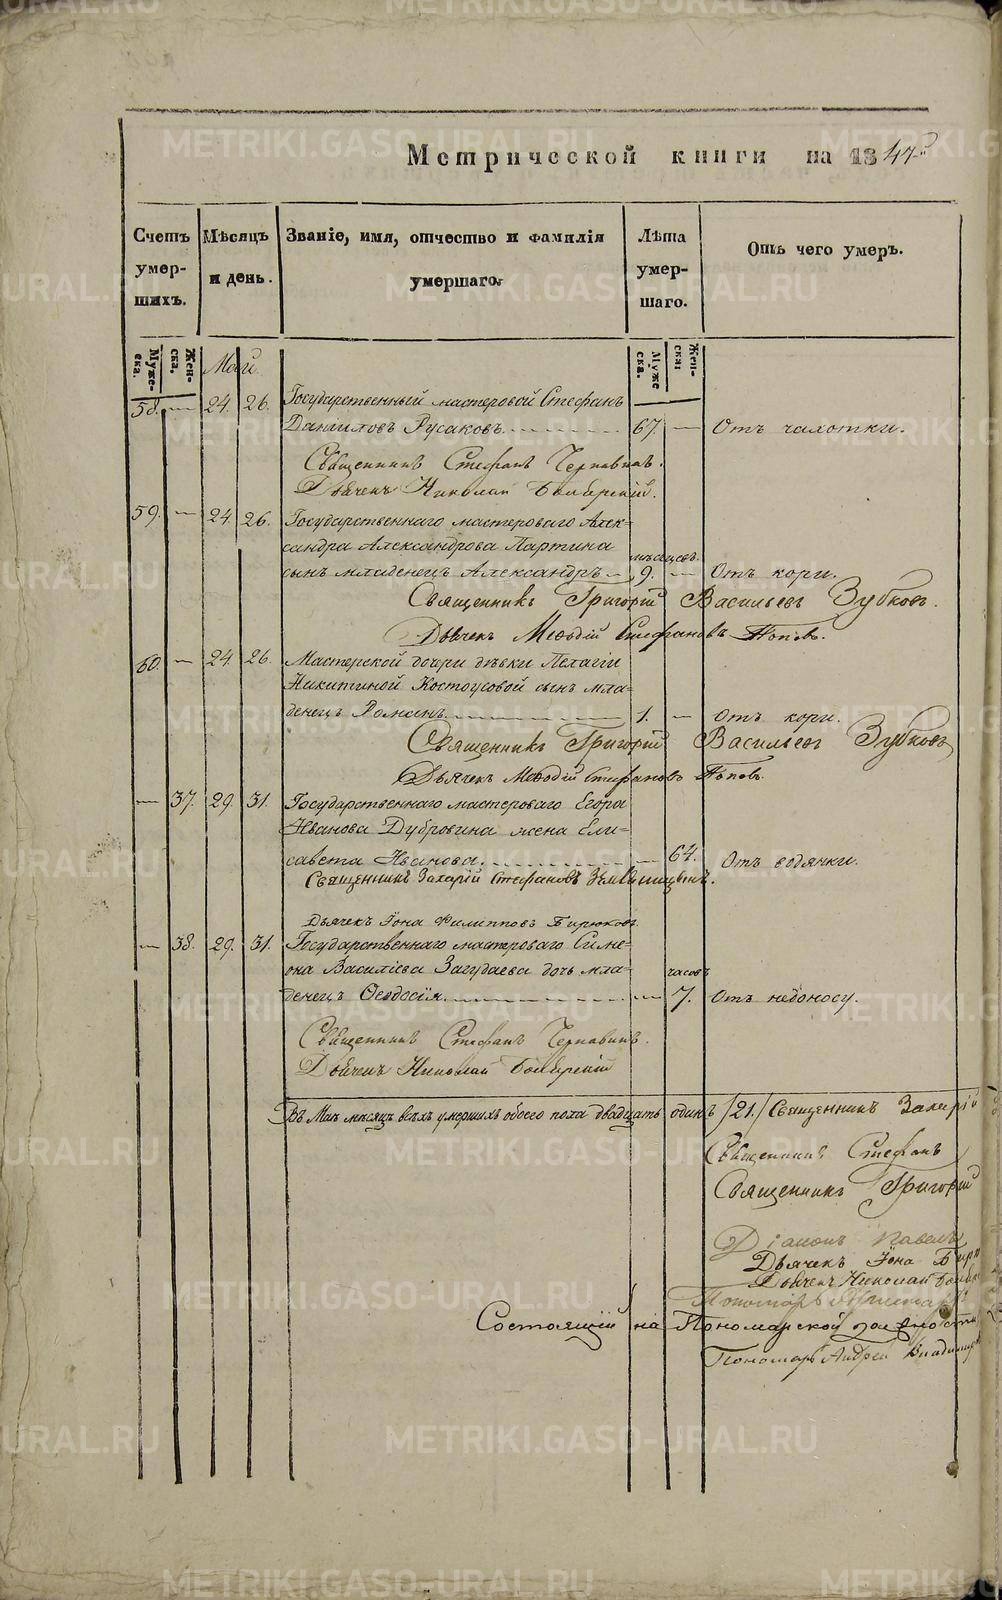 Метрической книги на 1847 г.
Счетъ умер-шихъ.
Мѣсяцъ и день.
Званіе, имя, отчество и фамилія умершаго.
Лѣта умер-шаго.
Отъ чего умеръ.
Муже-ска.
Жен-ска.
Муже ска.
Жен-ска:
Май.
58. — 24. 26. Государственный мастеровой Стефанъ
Даниловъ Русаковъ. 67. — Отъ чахотки.
Священникъ Стефанъ Чернавинъ.
Дьячекъ Николай
59. — 24. 26. Государственнаго мастероваго Алек-
сандра Александрова Партина мѣсяцевъ.
сынъ младенецъ Александръ 9. — Отъ кори.
Священникъ Григорій Васильевъ Зубковъ.
Дьячекъ Меѳодій Стефановъ Поповъ.
60. — 24. 26. Мастерской дочри дѣвки Пелагіи
Никитиной Костоусовой сынъ мла-
денецъ Романъ. 1. — Отъ кори.
Священникъ Григорій Васильевъ Зубковъ
Дьячекъ Меѳодій Стефановъ Поповъ.
— 37. 29. 31. Государственнаго мастероваго Егора
Иванова Дубровина жена Ели-
савета Иванова. — 64. Отъ водянки.
Священникъ Захарій Стефановъ
Дьячекъ Іона Филипповъ Бирюковъ.
— 38. 29. 31. Государственнаго мастероваго Симе-
она Василіева Загудаева дочь мла- часовъ
денецъ Ѳеодосія. — 7. Отъ недоносу.
Священникъ Стефанъ Чернавинъ.
Дьячекъ Николай
Въ Маѣ мѣсяцѣ всѣхъ умершихъ обоего пола двадцать одинъ /21./ Священникъ Захарій
Священникъ Стефанъ
Священникъ Григорій
Діаконъ Павелъ
Дьячекъ Іона Бирю
Дьячекъ Николай
Пономарь
Состоящій на Пономарской должности
Пономарь Андрей Владимир
METRIKI.GASO-URAL.RU